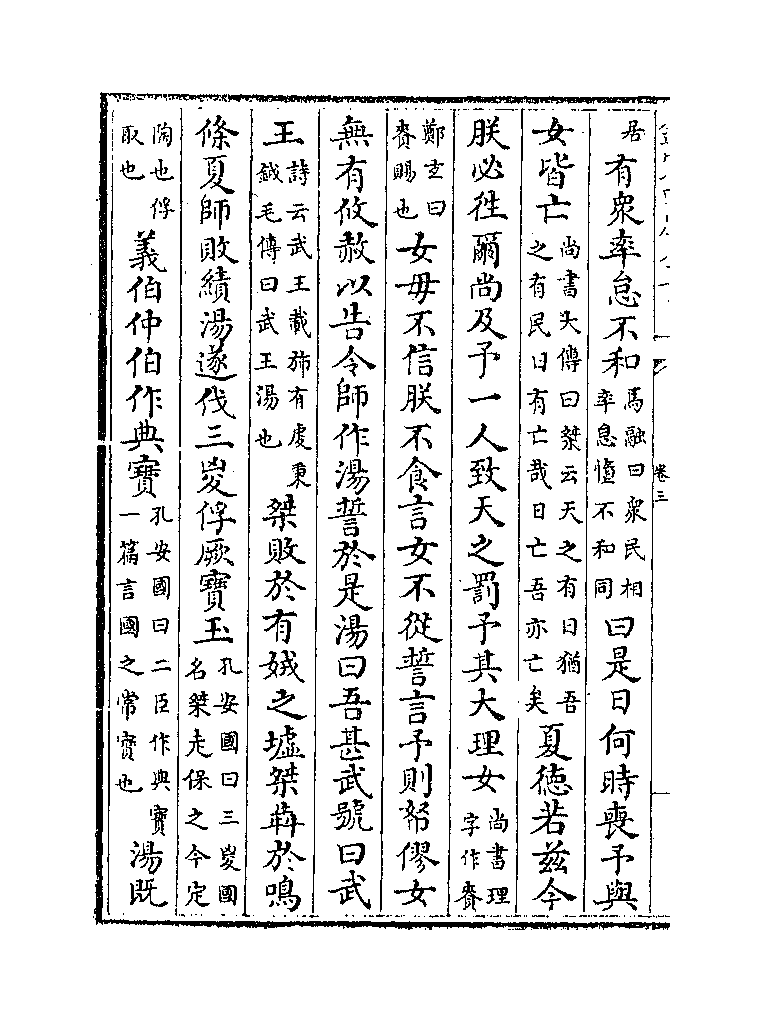 卷三
居有衆率怠不和馬融曰衆民相率怠惰不和同曰是日何時喪予與
女皆亡尚書大傳曰桀云天之有日猶吾之有民日有亡哉日亡吾亦亡矣夏徳若兹今
朕必徃爾尚及予一人致天之罰予其大理女尚書理字作賚
鄭玄曰賚賜也女毋不信朕不食言女不從誓言予則帑僇女
無有攸赦以告令師作湯誓於是湯曰吾甚武號曰武
王詩云武王載斾有虔秉鉞毛傳曰武王湯也桀敗於有娀之墟桀犇於鳴
條夏師敗績湯遂伐三㚇俘厥寶玉孔安國曰三㚇國名桀走保之今定
陶也俘取也義伯仲伯作典寶孔安國曰二臣作典寳一篇言國之常寳也湯既